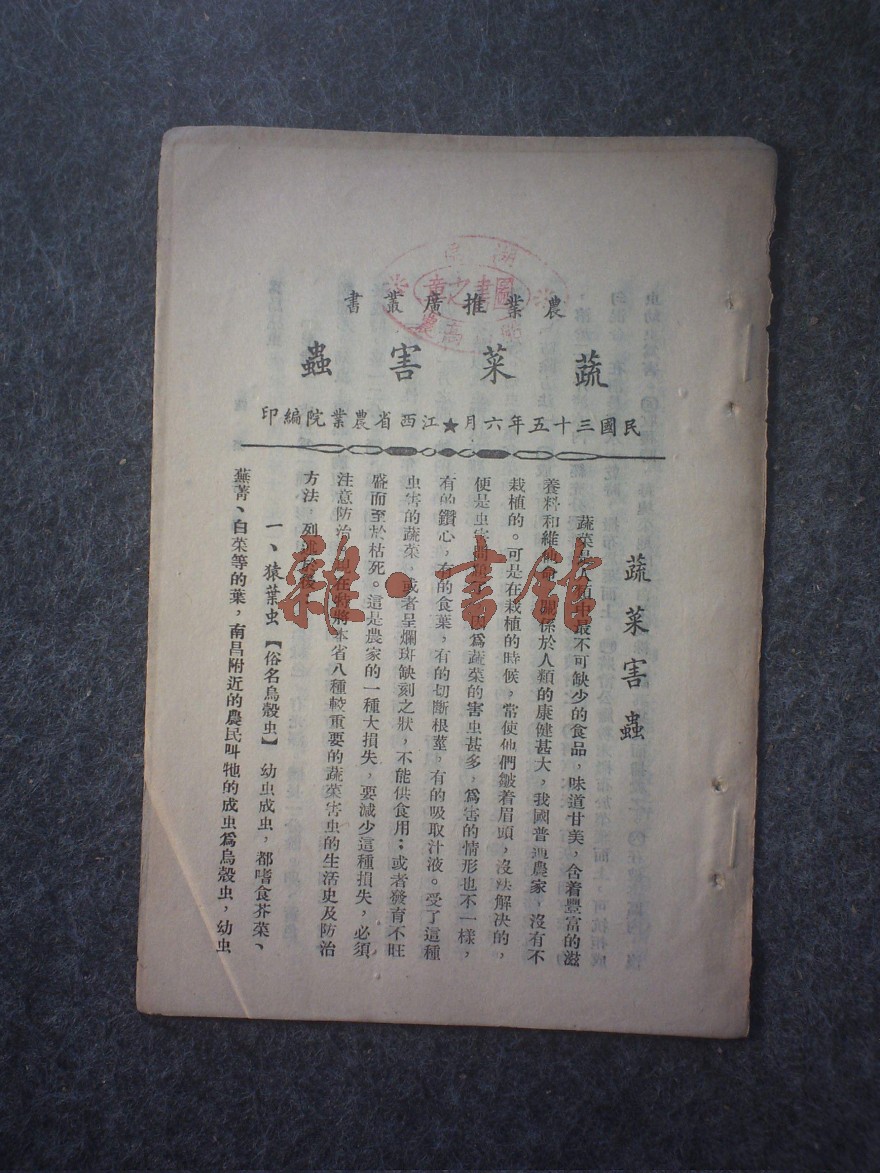 農業推廣叢書
蔬菜害蟲
民國三十五年六月★江西省農業院編印
蔬菜害蟲
蔬菜是人類中最不可缺少的食品，味道甘美，含着豐富的滋
養料和維他命，關係於人類的康健甚大，我國普通農家，沒有不
栽植的。可是在栽植的時候，常使他們皺着眉頭，沒法解決的，
便是虫害問題了。因爲蔬菜的害虫甚多，爲害的情形也不一樣，
有的鑽心，有的食葉，有的切斷根莖，有的吸取汁液。受了這種
虫害的蔬菜，或者呈爛斑缺刻之狀，不能供食用；或者發育不旺
盛而至於枯死。這是農家的一種大損失，要減少這種損失，必須
注意防治。現在特將本省八種較重要的蔬菜害虫的生活史及防治
方法，列述於後：
一、猿葉虫【俗名烏殼虫】　幼虫成虫，都嗜食芥菜、
蕪菁、白菜等的葉，南昌附近的農民叫牠的成虫爲烏殼虫，幼虫
圖書之章
雜·書館